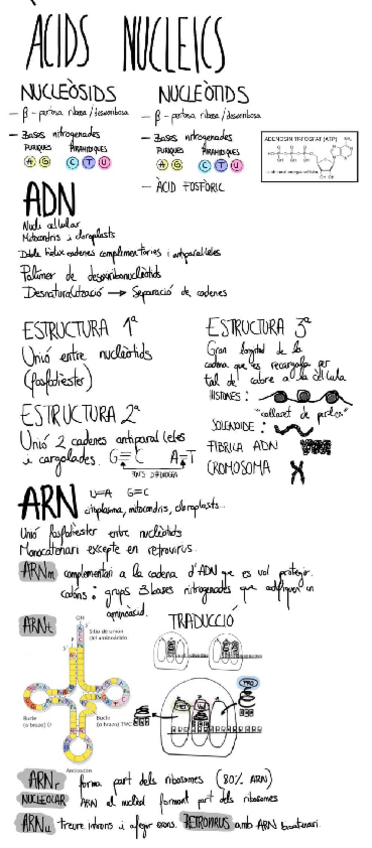 ÀCIDS NUCLEICS
NUCLEÒSIDS
- β - pentosa ribosa / desoxiribosa
- Bases nitrogenades
PURIQUES PIRIMIDIQUES
A G C T U
NUCLEÒTIDS
- β - pentosa ribosa / desoxiribosa
- Bases nitrogenades
PURIQUES PIRIMIDIQUES
A G C T U
- ÀCID FOSFÒRIC
ADENOSIN TRIFOSFAT (ATP)
ADN
Nucli cel·lular
Mitocondris i cloroplasts
Doble hèlix cadenes complementàries i antiparal·leles
Polímer de desoxiribonucleòtids
Desnaturalització → Separació de cadenes
ESTRUCTURA 1ª
Unió entre nucleòtids
(fosfodièster)
ESTRUCTURA 2ª
Unió 2 cadenes antiparal·leles
i cargolades. G≡C A=T
PONTS D'HIDROGEN
ESTRUCTURA 3ª
Gran longitud de la
cadena que es recargola per
tal de cabre a la cèl·lula
HISTONES:
"collaret de perles"
SOLENOIDE:
FIBRICA ADN
CROMOSOMA
ARN U=A G≡C
citoplasma, mitocondris, cloroplasts...
Unió fosfodièster entre nucleòtids
Monocatenari excepte en retrovirus.
ARNm complementari a la cadena d'ADN que es vol protegir.
codons: grups 3 bases nitrogenades que codifiquen un
aminoàcid.
ARNt
OH
Sitio de unión
del aminoácido
Bucle
(o brazo) D
Bucle
(o brazo) TΨC
Anticodón
TRADUCCIÓ
PRO
ARNr forma part dels ribosomes (80% ARN)
NUCLEOLAR ARN al nuclèol formant part dels ribosomes
ARNu treure introns i afegir exons. RETROVIRUS amb ARN bicatenari.